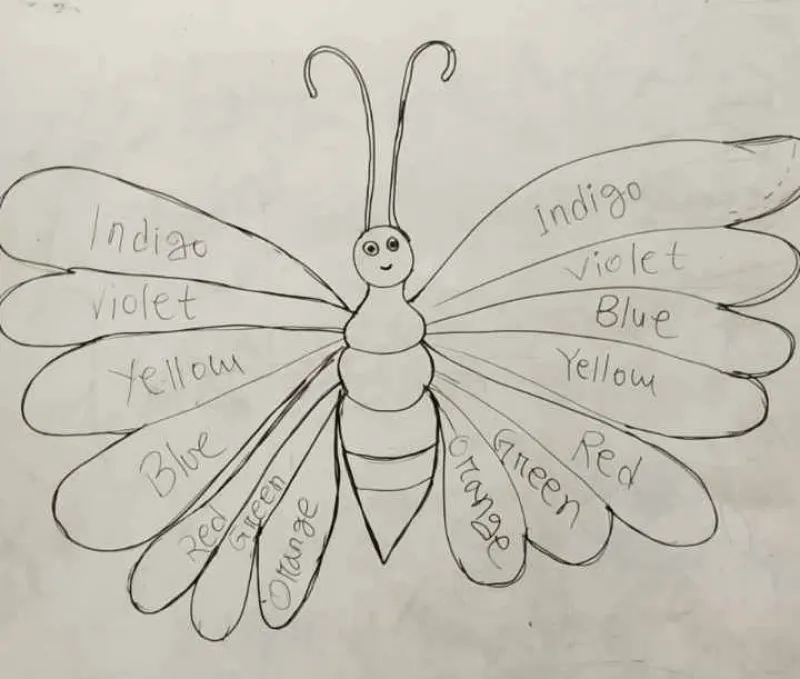 Indigo
violet
Yellow
Blue
Red
Green
Orange
indigo
violet
Blue
Yellow
Red
Green
Orange